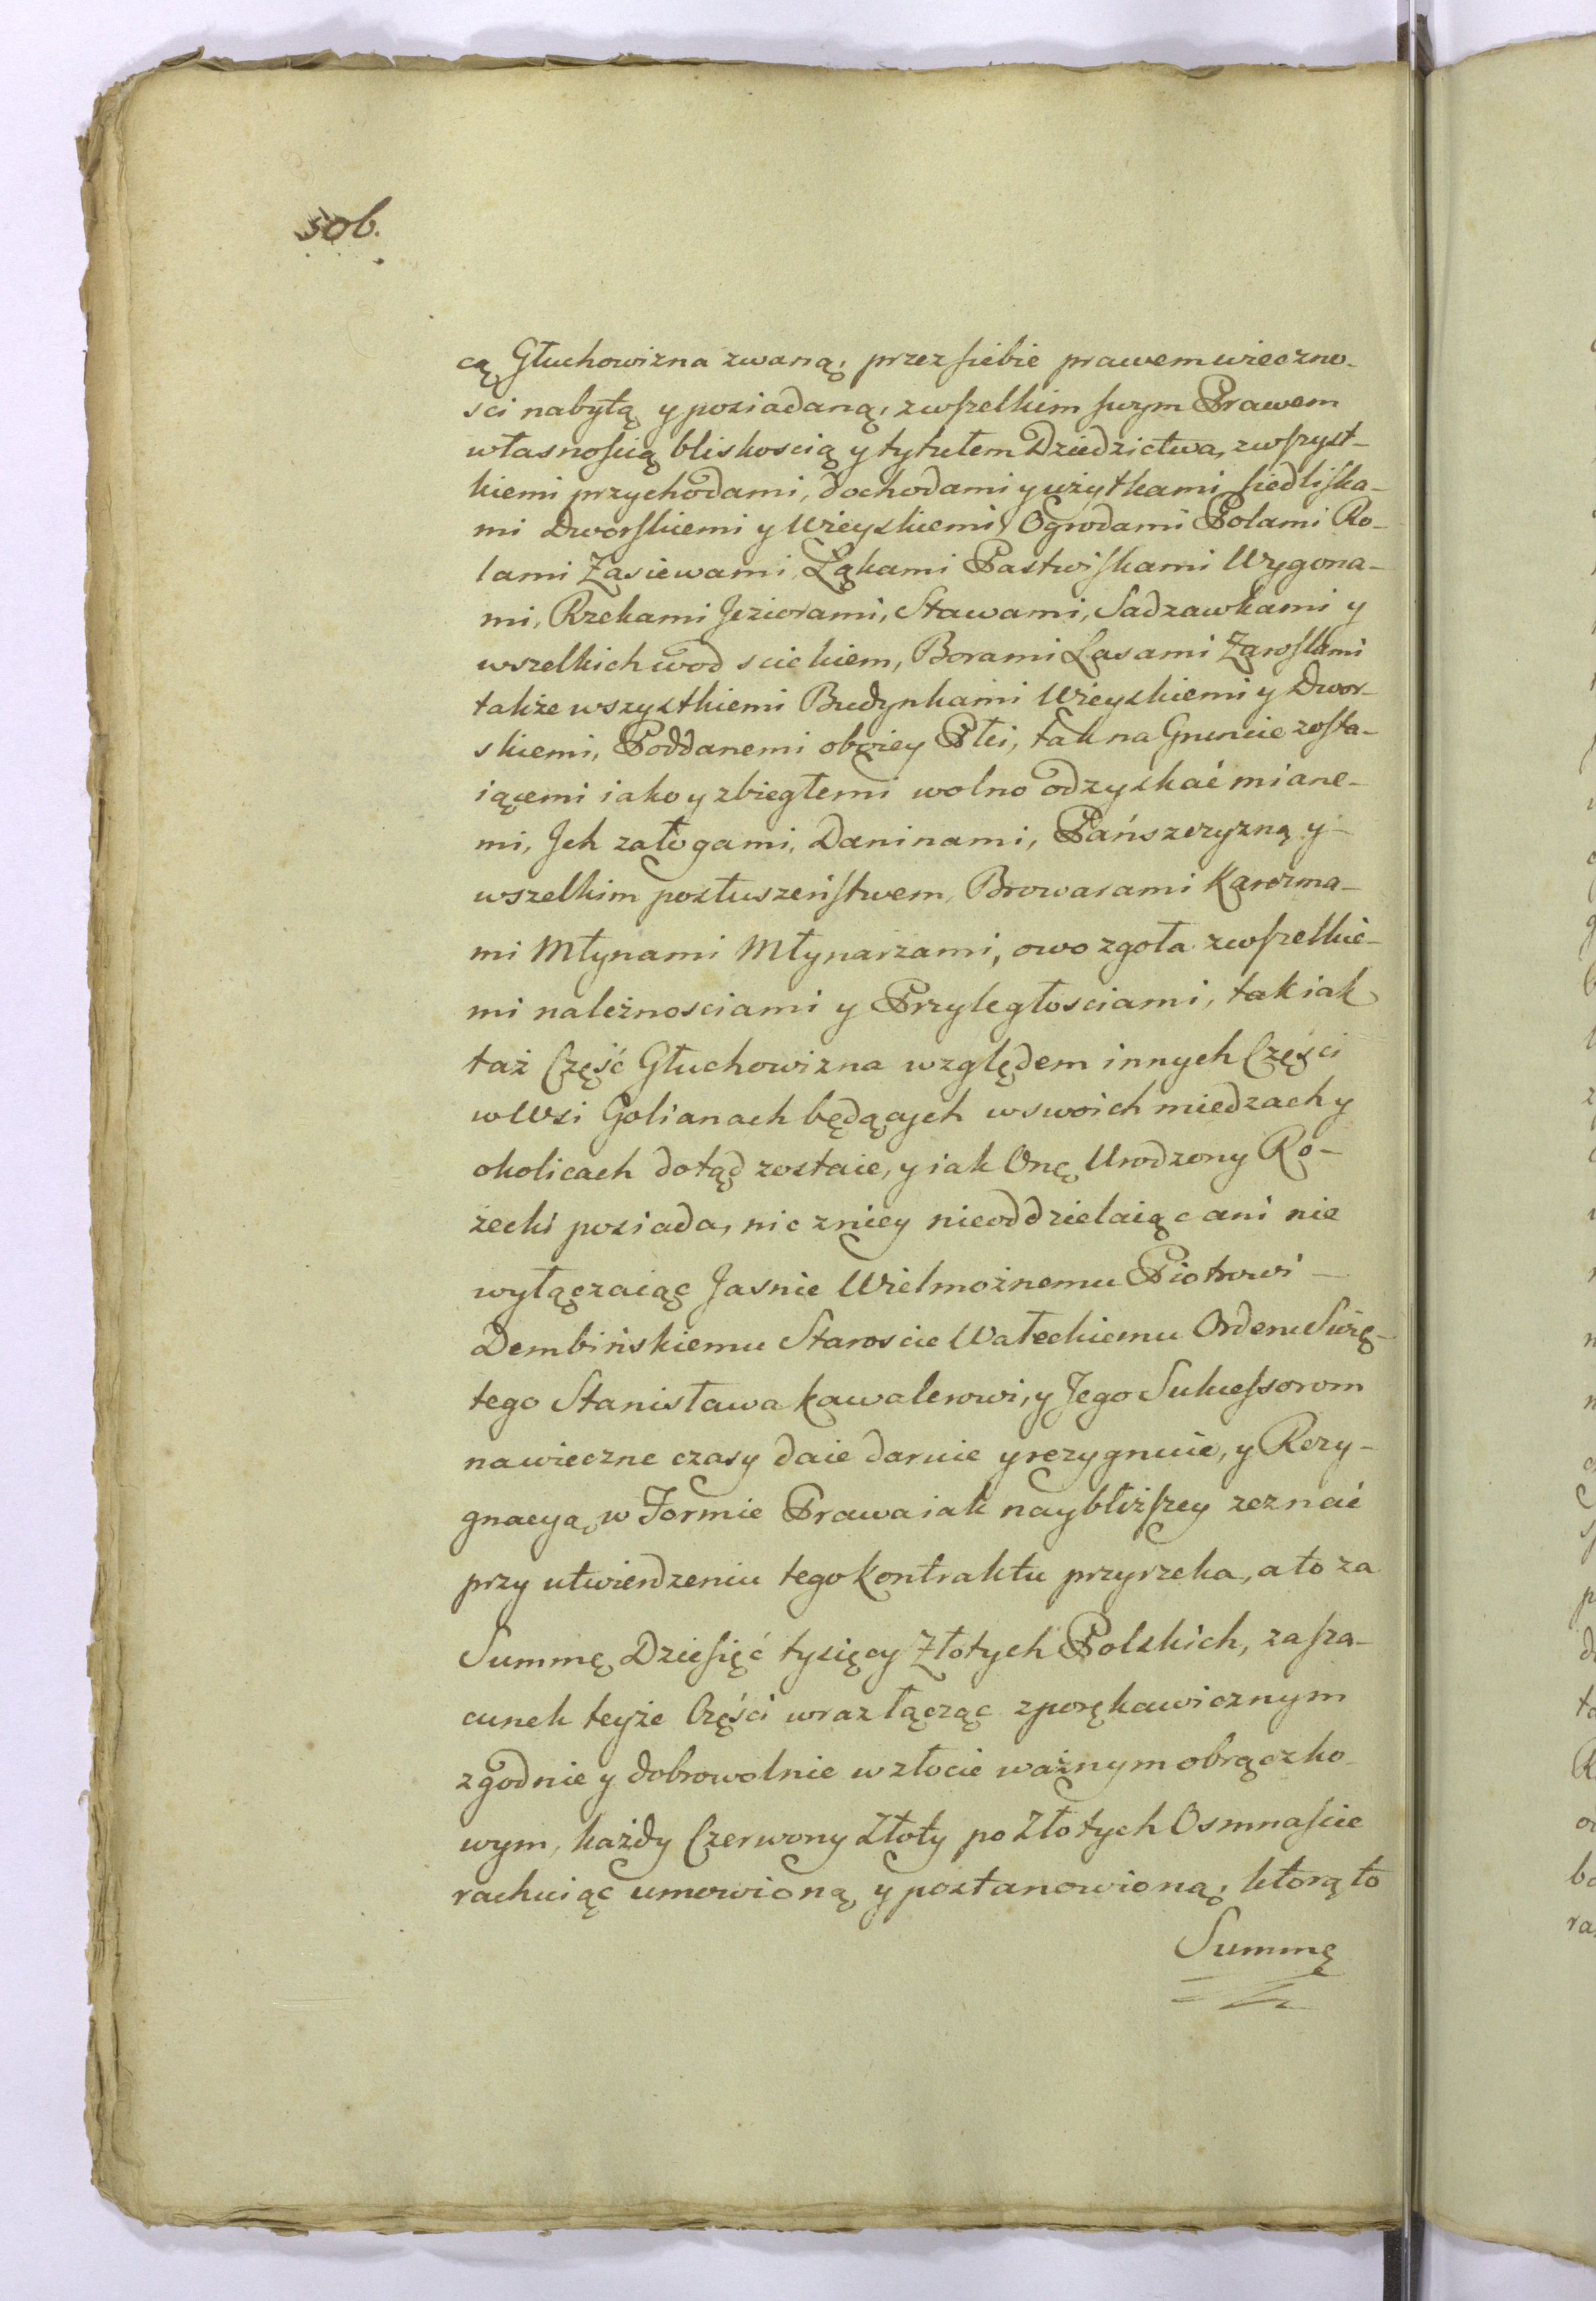 506.
cą Głuchowizna zwaną, przez siebie prawem wieczno-
sci nabytą y posiadaną, zwszelkim swym Prawem
własnoscią bliskoscią y tytułem Dziedzictwa, zwszyst-
kiemi przychodami, dochodami y użytkami siedliska-
mi Dworskiemi y Wieyskiemi, Ogrodami Polami Ro-
lami Zasiewami, Łąkami Pastwiskami Wygona-
mi, Rzekami Jeziorami, Stawami, Sadzawkami y
wszelkich wod sciekiem, Borami Lasami Zaroslami
także wszystkiemi Budynkami Wieyskiemi y Dwor-
skiemi, Poddanemi oboiey Płci, tak na Gruncie zosta-
iącemi iako y zbiegłemi wolno odzyskać miane-
mi, Jch załogami, Daninami, Pańszczyzną y
wszelkim posłuszeństwem, Browarami Karczma-
mi Młynami Młynarzami, owo zgoła zwszelkie-
mi należnosciami y Przyległosciami, tak iak
taż Część Głuchowizna względem innych Części
w Wsi Golianach będących w swoich miedzach y
okolicach dotąd zostaie, y iak Onę Urodzony Ro-
żecki posiada, nic zniey nieoddzielaiąc ani nie
wyłączaiąc Jasnie Wielmożnemu Piotrowi
Dembińskiemu Staroscie Wałeckiemu Orderu Swię-
tego Stanisława Kawalerowi, y Jego Sukcessorom
na wieczne czasy daie daruie y rezygnuie, y Rezy-
gnacyą w Formie Prawa iak naybliższey zeznać
przy utwierdzeniu tego Kontraktu przyrzeka, a to za
Summę Dziesięć tysięcy Złotych Polskich, za sza-
cunek teyże Części wraz łącząc zporękawicznym
zgodnie y dobrowolnie w złocie ważnym obrączko-
wym, każdy Czerwony Złoty po Złotych Osmnascie
rachuiąc umowioną y postanowioną, ktorą to
Summę